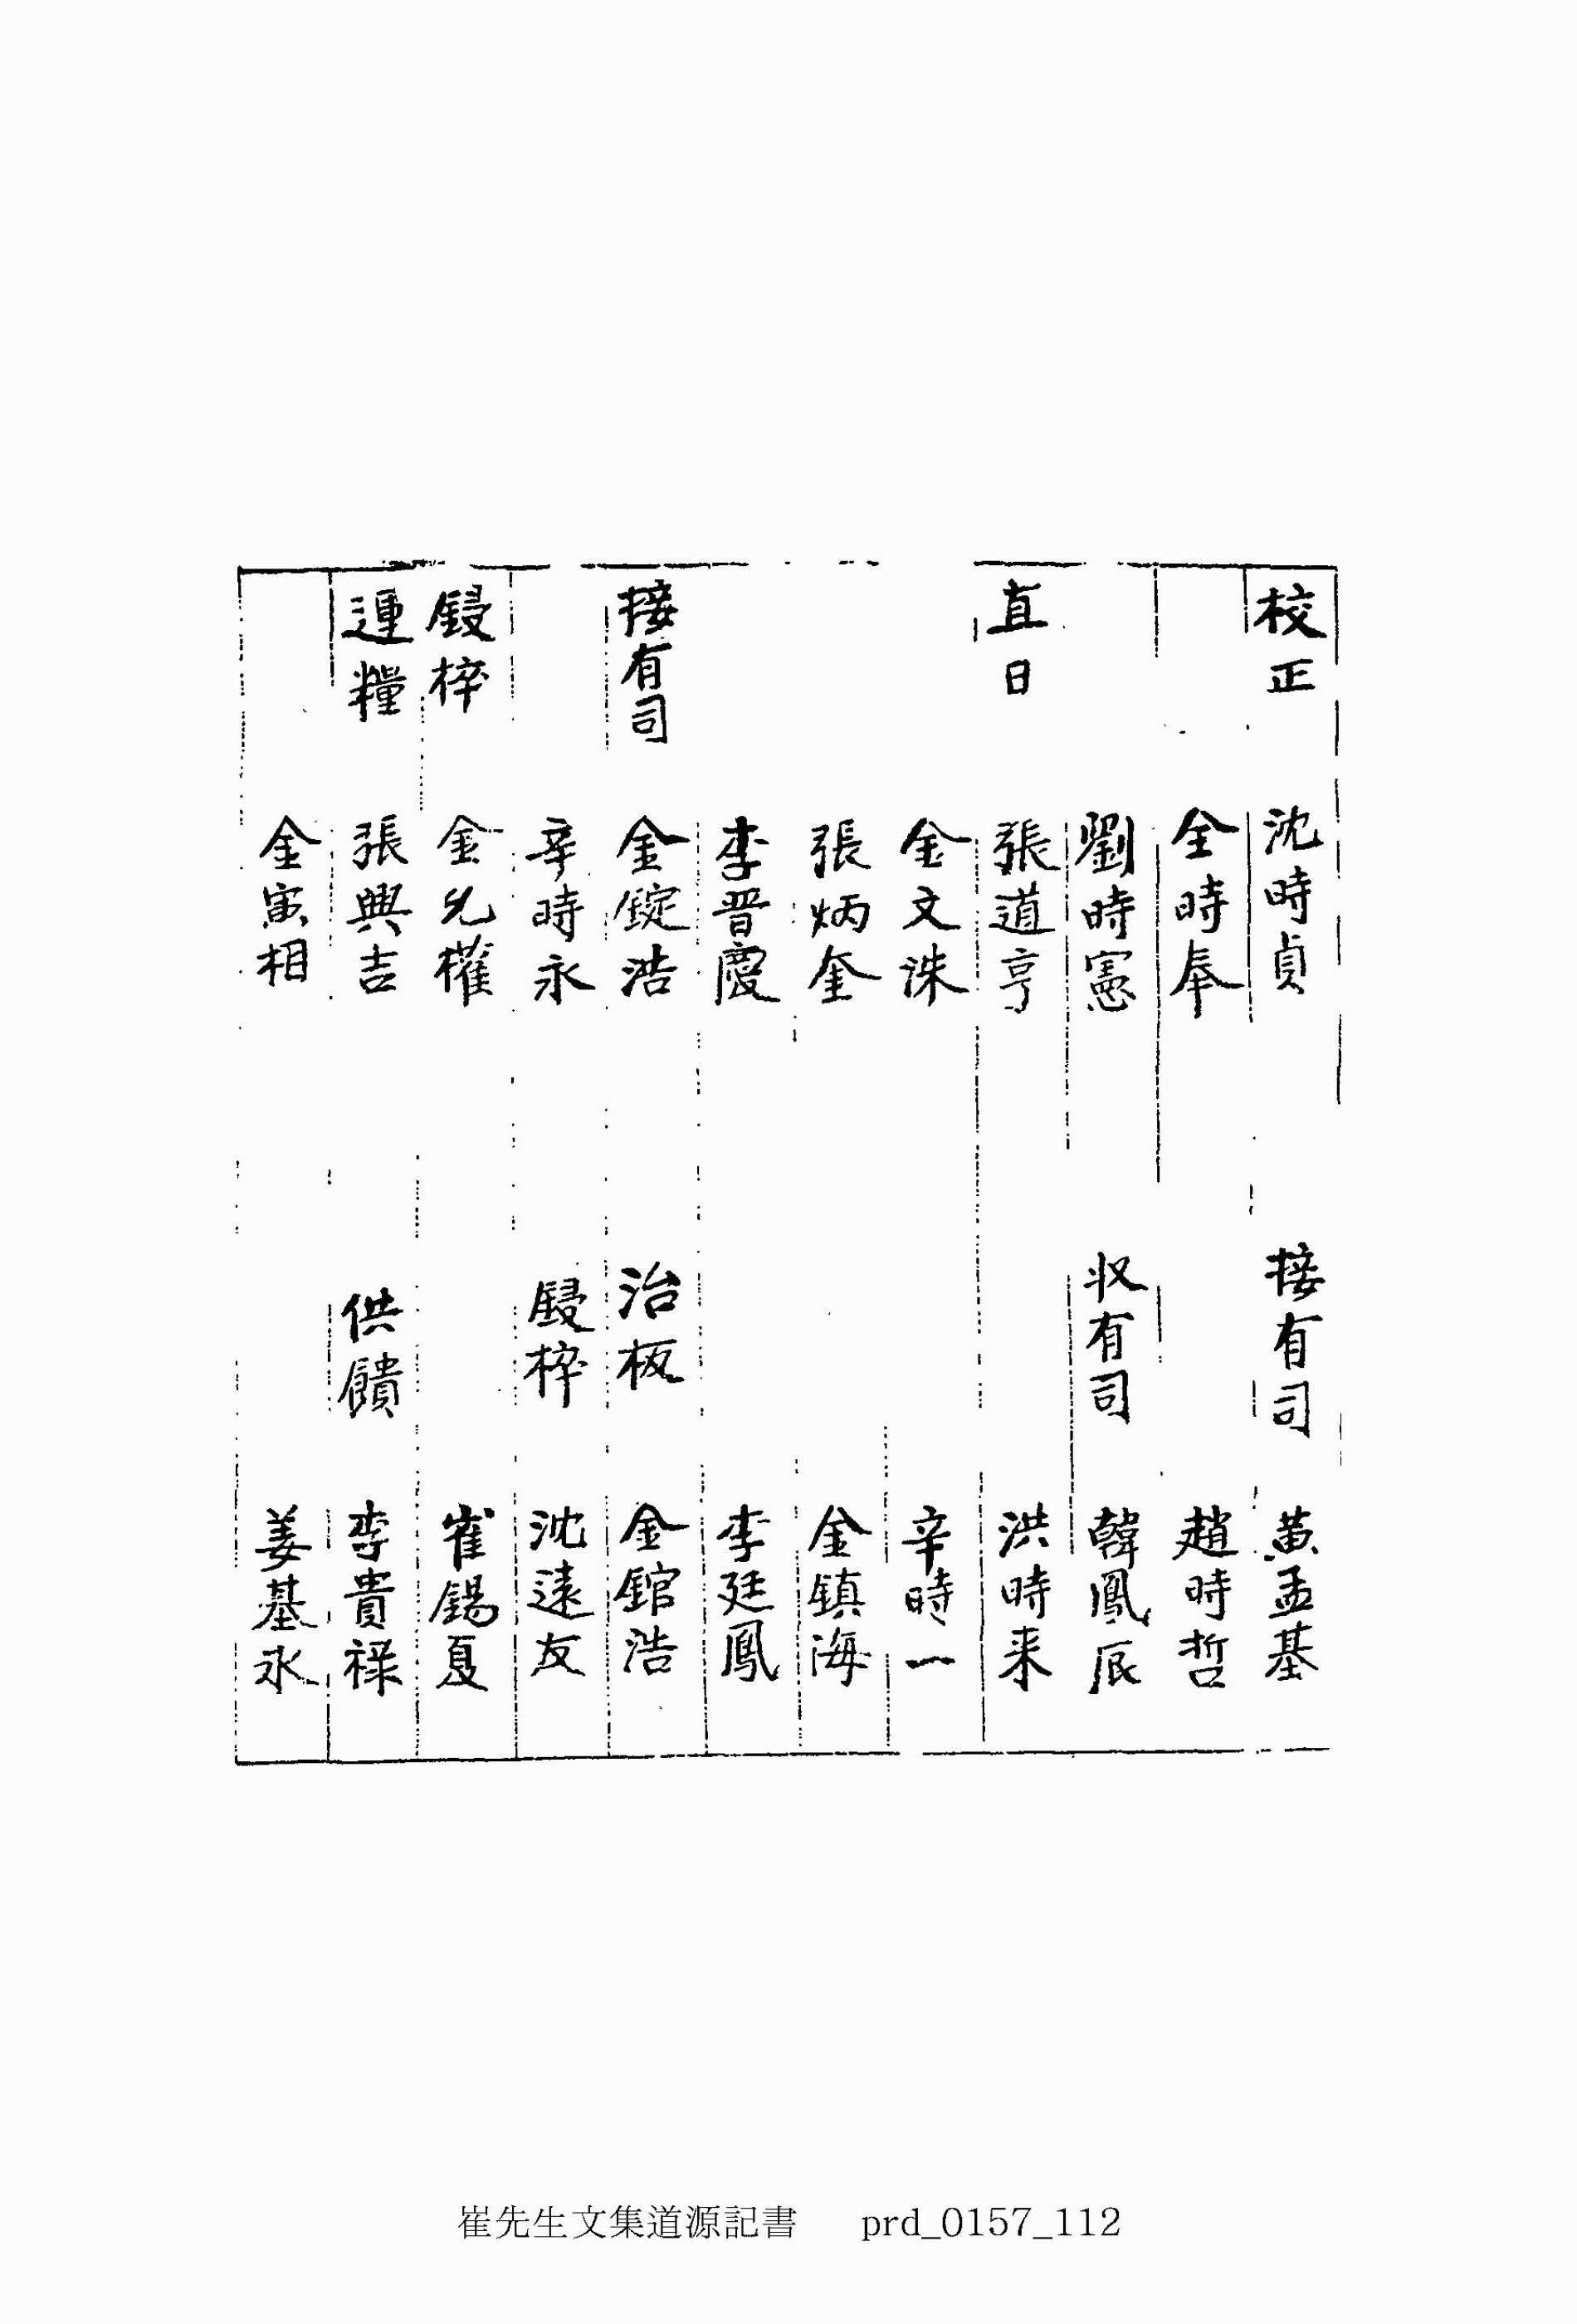 校正 沈時貞 接有司 黃孟基
全時奉 趙時哲
劉時憲 収有司 韓鳳辰
直日 張道亨 洪時来
金文洙 辛時一
張炳奎 金鎮海
李晋慶 李廷鳳
接有司 金錠浩 治板 金錧浩
辛時永 鋟梓 沈遠友
鋟梓 金允權 崔錫夏
運糧 張興吉 供饋 李貴祿
金寅相 姜基永
崔先生文集道源記書 prd_0157_112